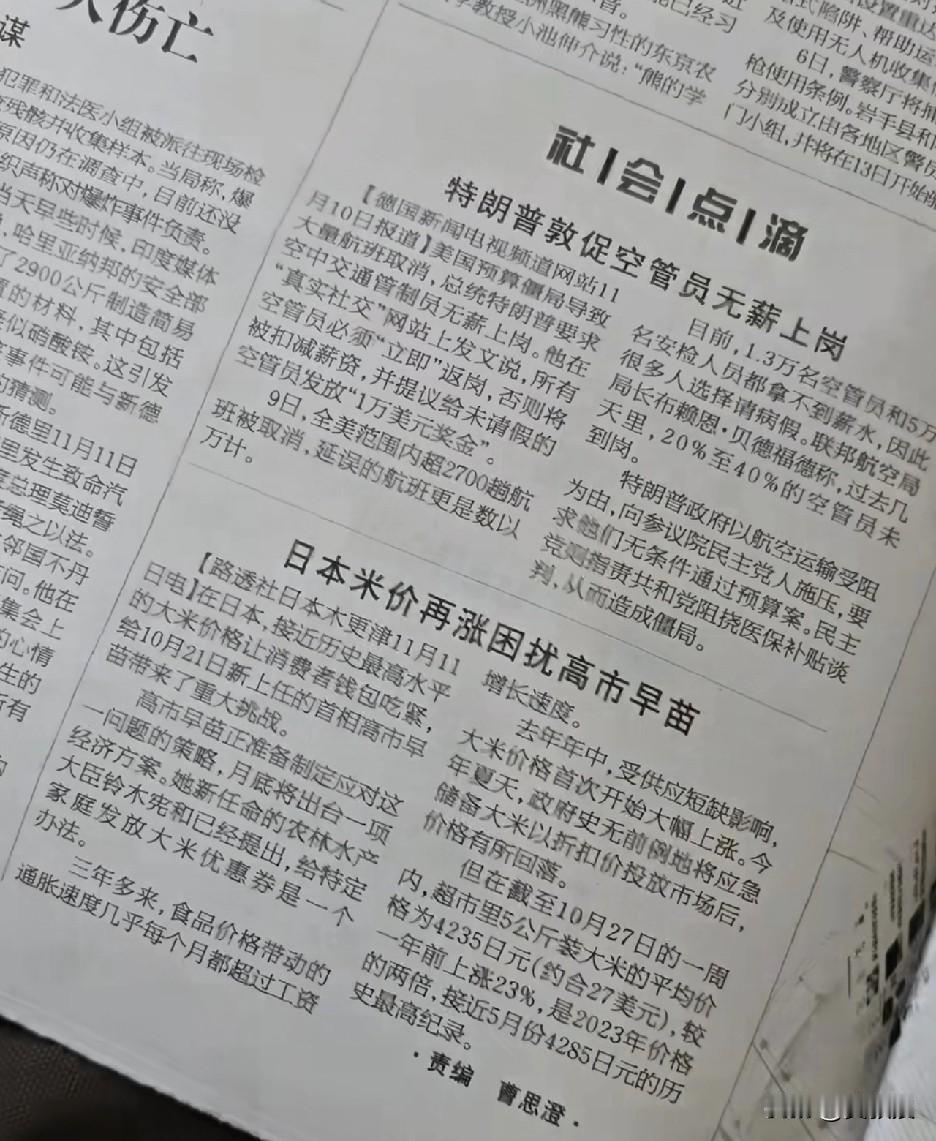 人伤亡
谋
犯罪和法医小组被派往现场检
残骸并收集样本。当局称，爆
原因仍在调查中，目前还没
织声称对爆炸事件负责。
当天早些时候，印度媒体
，哈里亚纳邦的安全部
了2900公斤制造简易
的材料，其中包括
似硝酸铵。这引发
事件可能与新德
的猜测。
新德里11月11日
里发生致命汽
总理莫迪誓
绳之以法。
邻国不丹
访问。他在
集会上
的心情
生的
所有
洲黑熊习性的东京农
学教授小池仲介说：“熊的学
式陷阱、帮助运
及使用无人机收集
6日，警察厅将
枪使用条例。岩手县和
分别成立由各地区警员
门小组，并将在13日开始
社会点滴
特朗普敦促空管员无薪上岗
【德国新闻电视频道网站11
月10日报道】美国预算僵局导致
大量航班取消，总统特朗普要求
空中交通管制员无薪上岗。他在
“真实社交”网站上发文说，所有
空管员必须“立即”返岗，否则将
被扣减薪资，并提议给未请假的
空管员发放“1万美元奖金”。
9日，全美范围内超2700趟航
班被取消，延误的航班更是数以
万计。
目前，1.3万名空管员和5万
名安检人员都拿不到薪水，因此
很多人选择请病假。联邦航空局
局长布赖恩·贝德福德称，过去几
天里，20%至40%的空管员未
到岗。
特朗普政府以航空运输受阻
为由，向参议院民主党人施压，要
求他们无条件通过预算案。民主
党则指责共和党阻挠医保补贴谈
判，从而造成僵局。
日本米价再涨困扰高市早苗
【路透社日本木更津11月11
日电】在日本，接近历史最高水平
的大米价格让消费者钱包吃紧，
给10月21日新上任的首相高市早
苗带来了重大挑战。
高市早苗正准备制定应对这
一问题的策略，月底将出台一项
经济方案。她新任命的农林水产
大臣铃木宪和已经提出，给特定
家庭发放大米优惠券是一个
办法。
三年多来，食品价格带动的
通胀速度几乎每个月都超过工资
增长速度。
去年年中，受供应短缺影响，
大米价格首次开始大幅上涨。今
年夏天，政府史无前例地将应急
储备大米以折扣价投放市场后，
价格有所回落。
但在截至10月27日的一周
内，超市里5公斤装大米的平均价
格为4235日元（约合27美元），较
一年前上涨23%，是2023年价格
的两倍，接近5月份4285日元的历
史最高纪录。
·责编 曹思澄·